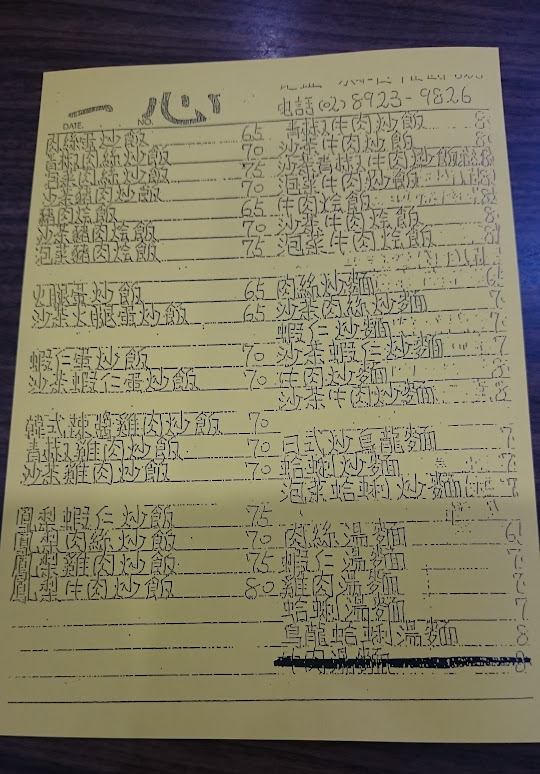 一心
電話(02)8923-9826
DATE. NO.
肉絲蛋炒飯 65
青椒肉絲炒飯 70
泡菜肉絲炒飯 75
沙茶豬肉炒飯 70
豬肉燴飯 65
沙茶豬肉燴飯 70
泡菜豬肉燴飯 75
火腿蛋炒飯 65
沙茶火腿蛋炒飯 65
蝦仁蛋炒飯 70
沙茶蝦仁蛋炒飯 70
韓式辣醬雞肉炒飯 70
青椒雞肉炒飯 70
沙茶雞肉炒飯 70
鳳梨蝦仁炒飯 75
鳳梨肉絲炒飯 70
鳳梨雞肉炒飯 75
鳳梨牛肉炒飯 80
青椒牛肉炒飯
沙茶牛肉炒飯
沙茶青椒牛肉炒飯
泡菜牛肉炒飯
牛肉燴飯
沙茶牛肉燴飯
泡菜牛肉燴飯
肉絲炒麵
沙茶肉絲炒麵
蝦仁炒麵
沙茶蝦仁炒麵
牛肉炒麵
沙茶牛肉炒麵
日式炒烏龍麵
蛤蜊炒麵
泡菜蛤蜊炒麵
肉絲湯麵
蝦仁湯麵
雞肉湯麵
蛤蜊湯麵
烏龍蛤蜊湯麵